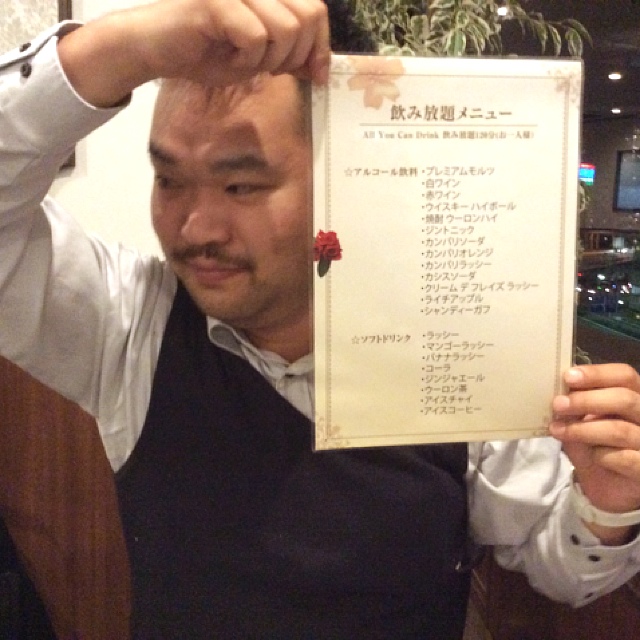 飲み放題メニュー
All You Can Drink 飲み放題120分(お一人様)
☆アルコール飲料 ・プレミアムモルツ
・白ワイン
・赤ワイン
・ウイスキー ハイボール
・焼酎 ウーロンハイ
・ジントニック
・カンパリソーダ
・カンパリオレンジ
・カンパリラッシー
・カシスソーダ
・クリーム デ フレイズ ラッシー
・ライチアップル
・シャンディーガフ
☆ソフトドリンク ・ラッシー
・マンゴーラッシー
・バナナラッシー
・コーラ
・ジンジャエール
・ウーロン茶
・アイスチャイ
・アイスコーヒー